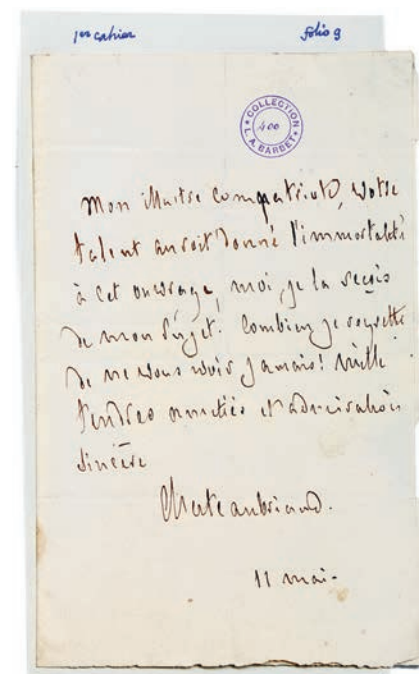 1er cahier folio 9
COLLECTION
400
L. A. BARBET
Mon illustre compatriote, votre
talent auroit donné l'immortalité
à cet ouvrage, moi, je la reçois
de mon sujet. Combien je regrette
de ne vous voir jamais! Mille
tendres amitiés et admiration
sincère
Chateaubriand.
11 mai.